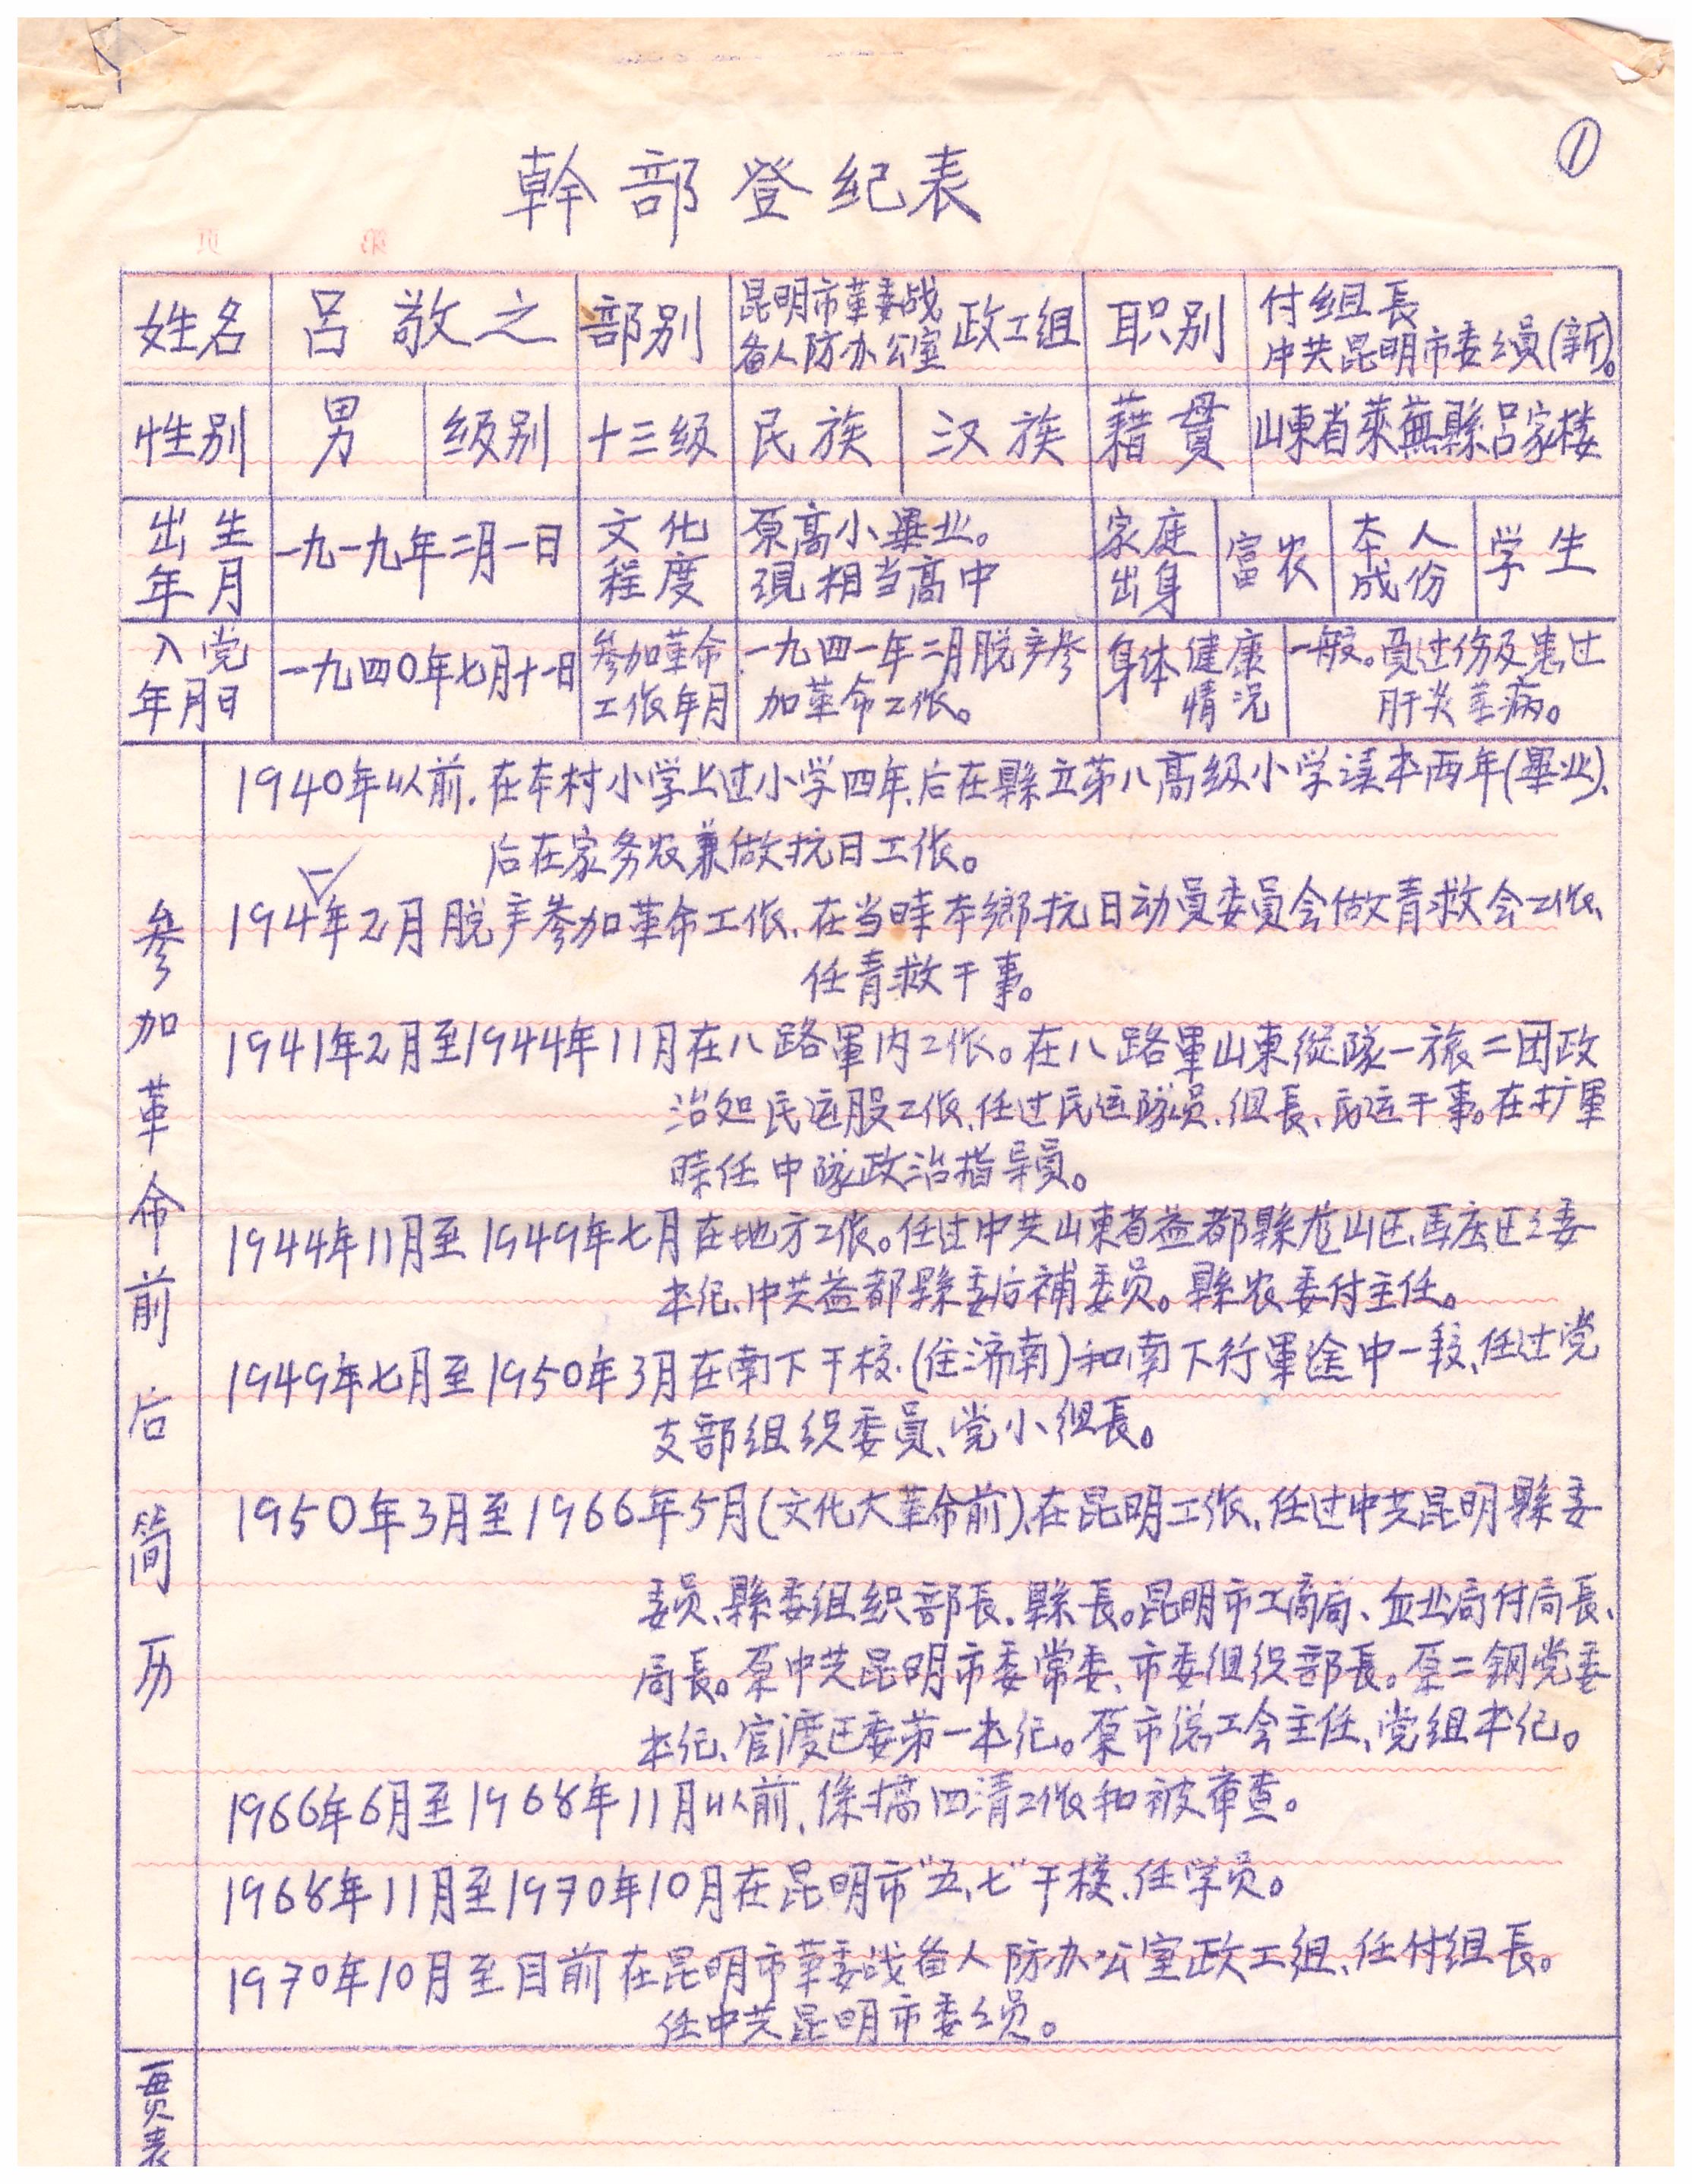 ①
幹部登纪表
姓名 吕敬之 部别 昆明市革委战备人防办公室 政工组 职别 付组長 中共昆明市委々員(新)。
性别 男 级别 十三级 民族 汉族 藉貫 山東省萊蕪縣吕家楼
出生年月 一九一九年二月一日 文化程度 原高小畢业。現相当高中 家庭出身 富农 本人成份 学生
入党年月日 一九四〇年七月十一日 参加革命工作年月 一九四一年二月脱产参加革命工作。 身体健康情况 一般。負过伤及患过肝炎等病。
参加革命前后简历
1940年以前.在本村小学上过小学四年.后在縣立第八高级小学读书两年(畢业)、
后在家务农兼做抗日工作。
194 年2月脱产参加革命工作.在当時本鄉抗日动員委員会做青救会工作、
任青救干事。
1941年2月至1944年11月在八路軍内工作。在八路軍山東縱隊一旅二团政
治处民运股工作.任过民运隊员.组長、民运干事。在扩軍
時任中隊政治指导員。
1944年11月至1949年七月在地方工作。任过中共山東省益都縣 山区、馬庄区々委
书纪、中共益都縣委后補委员。縣农委付主任。
1949年七月至1950年3月在南下干校.(住济南)和南下行軍途中一段、任过党
支部组织委員、党小组長。
1950年3月至1966年5月(文化大革命前).在昆明工作.任过中共昆明縣委
委员、縣委组织部長.縣長。昆明市工商局、 业局付局長、
局長。原中共昆明市委常委、市委组织部長。原二钢党委
书纪、官渡区委第一书纪。原市总工会主任、党组书纪。
1966年6月至1968年11月以前.係搞四清工作和被审查。
1968年11月至1970年10月在昆明市"五、七"干校、任学员。
1970年10月至目前在昆明市革委战备人防办公室政工组、任付组長。
任中共昆明市委々员。
表